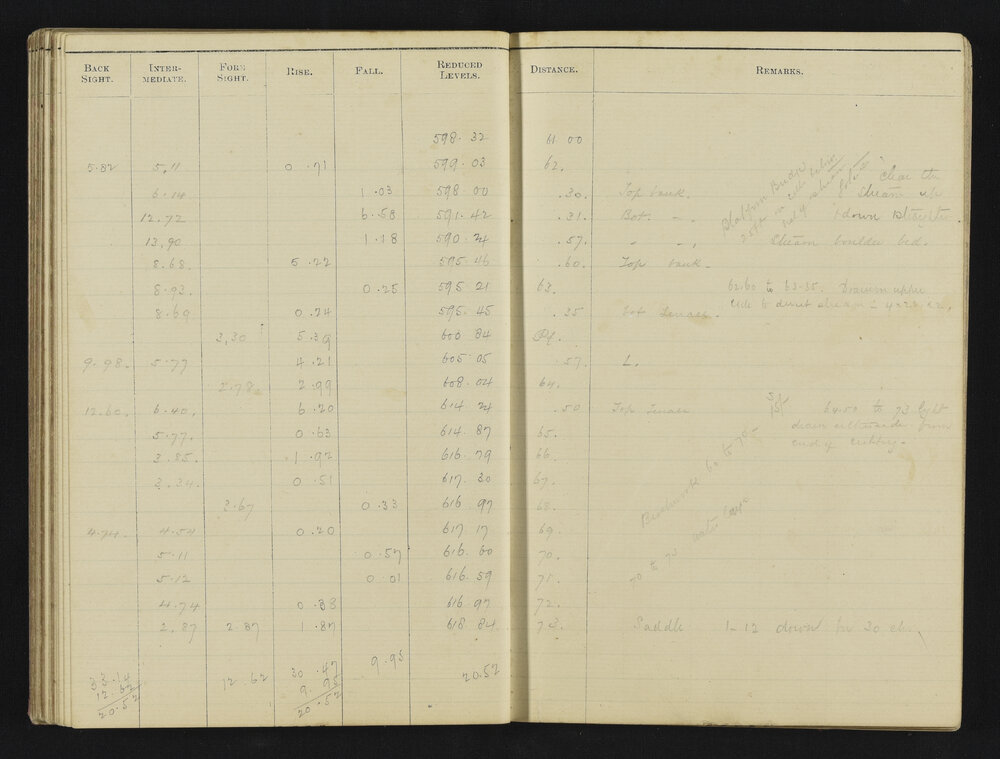 BACK SIGHT. INTER-MEDIATE. FORE SIGHT. RISE. FALL. REDUCED LEVELS. DISTANCE. REMARKS.
598.32 61 00
5.82 5.11 0.71 599.03 62.
6.14 1.03 598 00 .30. Top bank. Clear the
stream up
12.72 6.58 591.42 .31. Bot. " " & down
13.90 1.18 590.24 .57. " " Stream boulder bed.
8.68. 5.22 595.46 .60. Top bank.
8.93. 0.25 595 21 63. 62.60 to 63.35.
8.69 0.24 595.45 .35 Terrace. to divert stream
3.30 5.39 600 84 Pg.
9.98. 5.77 4.21 605.05 .57. L.
2.78. 2.99 608.04 64.
12.60. 6.40. 6.20 614.24 .50 Top Terrace 64.50 to 73 light
drain from
end of cutting.
5.77. 0.63 614.87 65.
3.85. 1.92 616.79 66.
3.34. 0.51 617.30 67.
3.67 0.33 616 97 68.
4.74. 4.54 0.20 617 17 69.
5.11 0.57 616.60 70.
5.12 0 01 616.59 71.
4.74 0.38 616.97 72.
2.87 2.87 1.87 618.84 73. Saddle 1-12 down for 20 ch.
33.14 12.62 30.47 9.95 20.52
12.62 9.95
20.52 20.52
60 to 70
70 to 73